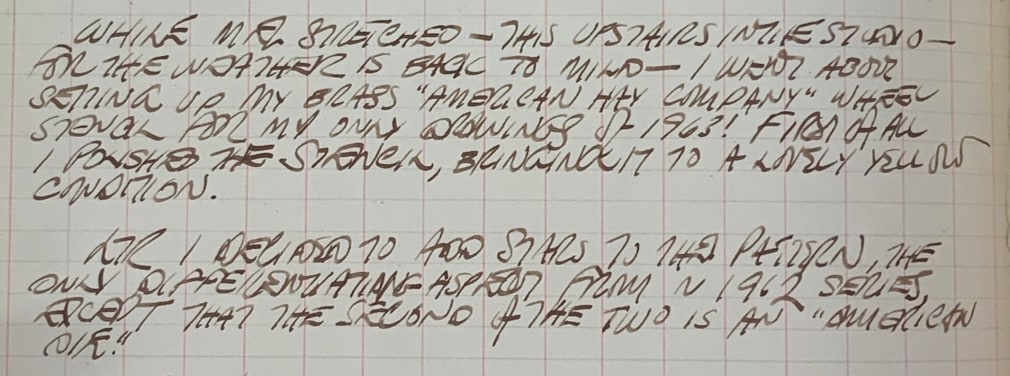 WHILE M.R. STRETCHED — THIS UPSTAIRS IN THE STUDIO —
FOR THE WEATHER IS BACK TO MILD — I WENT ABOUT
SETTING UP MY BRASS "AMERICAN HAY COMPANY" WHEEL
STENCIL FOR MY ONLY DRAWINGS OF 1963! FIRST OF ALL
I POLISHED THE STENCIL, BRINGING IT TO A LOVELY YELLOW
CONDITION.
LTR I DECIDED TO ADD STARS TO THE PATTERN, THE
ONLY DIFFERENTIATING ASPECT FROM 1962 SERIES,
EXCEPT THAT THE SECOND OF THE TWO IS AN "AMERICAN
DIE."